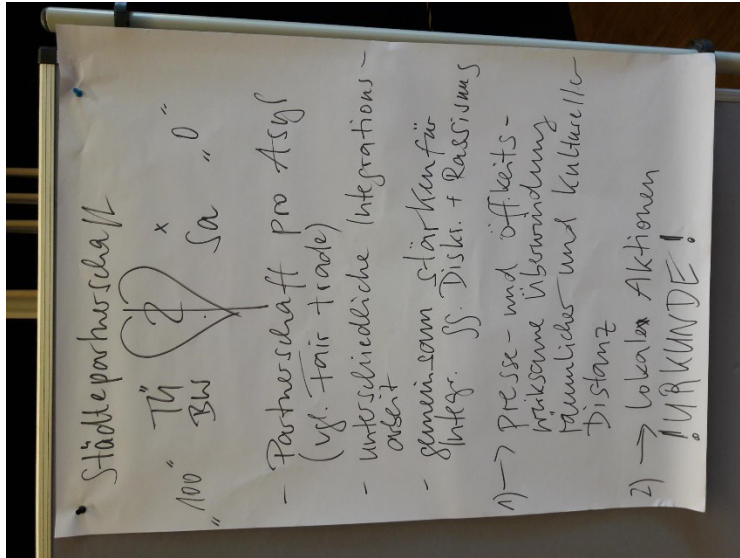 Städtepartnerschaft
"100" TÜ 2 x
BW Sa "0"
- Partnerschaft pro Asyl
(vgl. Fair trade)
- unterschiedliche Integrations-
arbeit
- gemeinsam stärken für
Integr. gg. Diskr. + Rassismus
1) → presse- und öff.keits-
wirksame Überwindung
räumlicher und kultureller
Distanz
2) → lokale Aktionen
! URKUNDE !